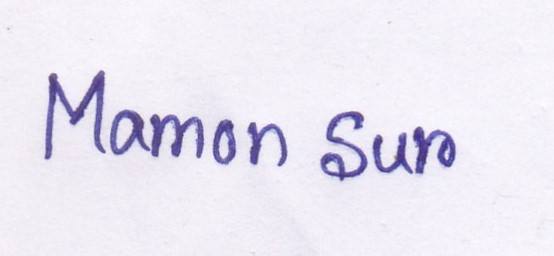 Mamon Sur